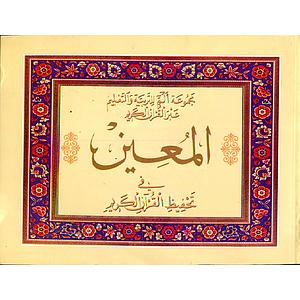 مجموعة أنبج للتربية والتعليم
عبر القرآن الكريم
المعين
في
تحفيظ القرآن الكريم